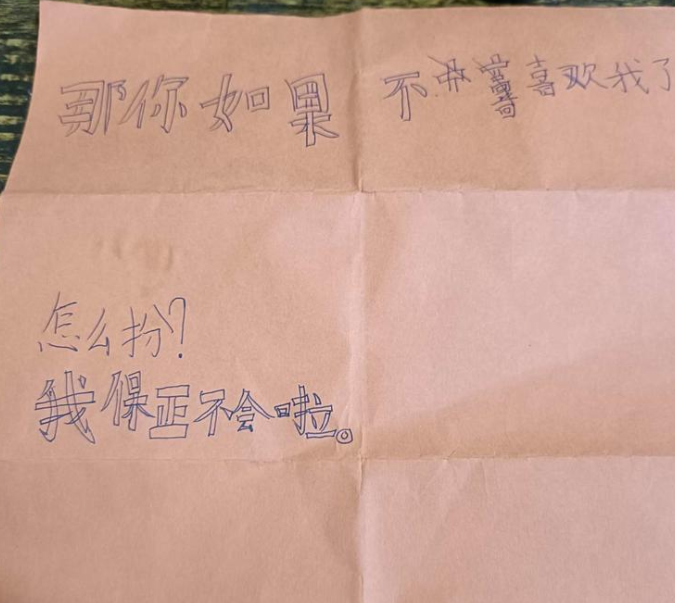 那你如果不喜欢我了
怎么扮？
我保正不会啦。